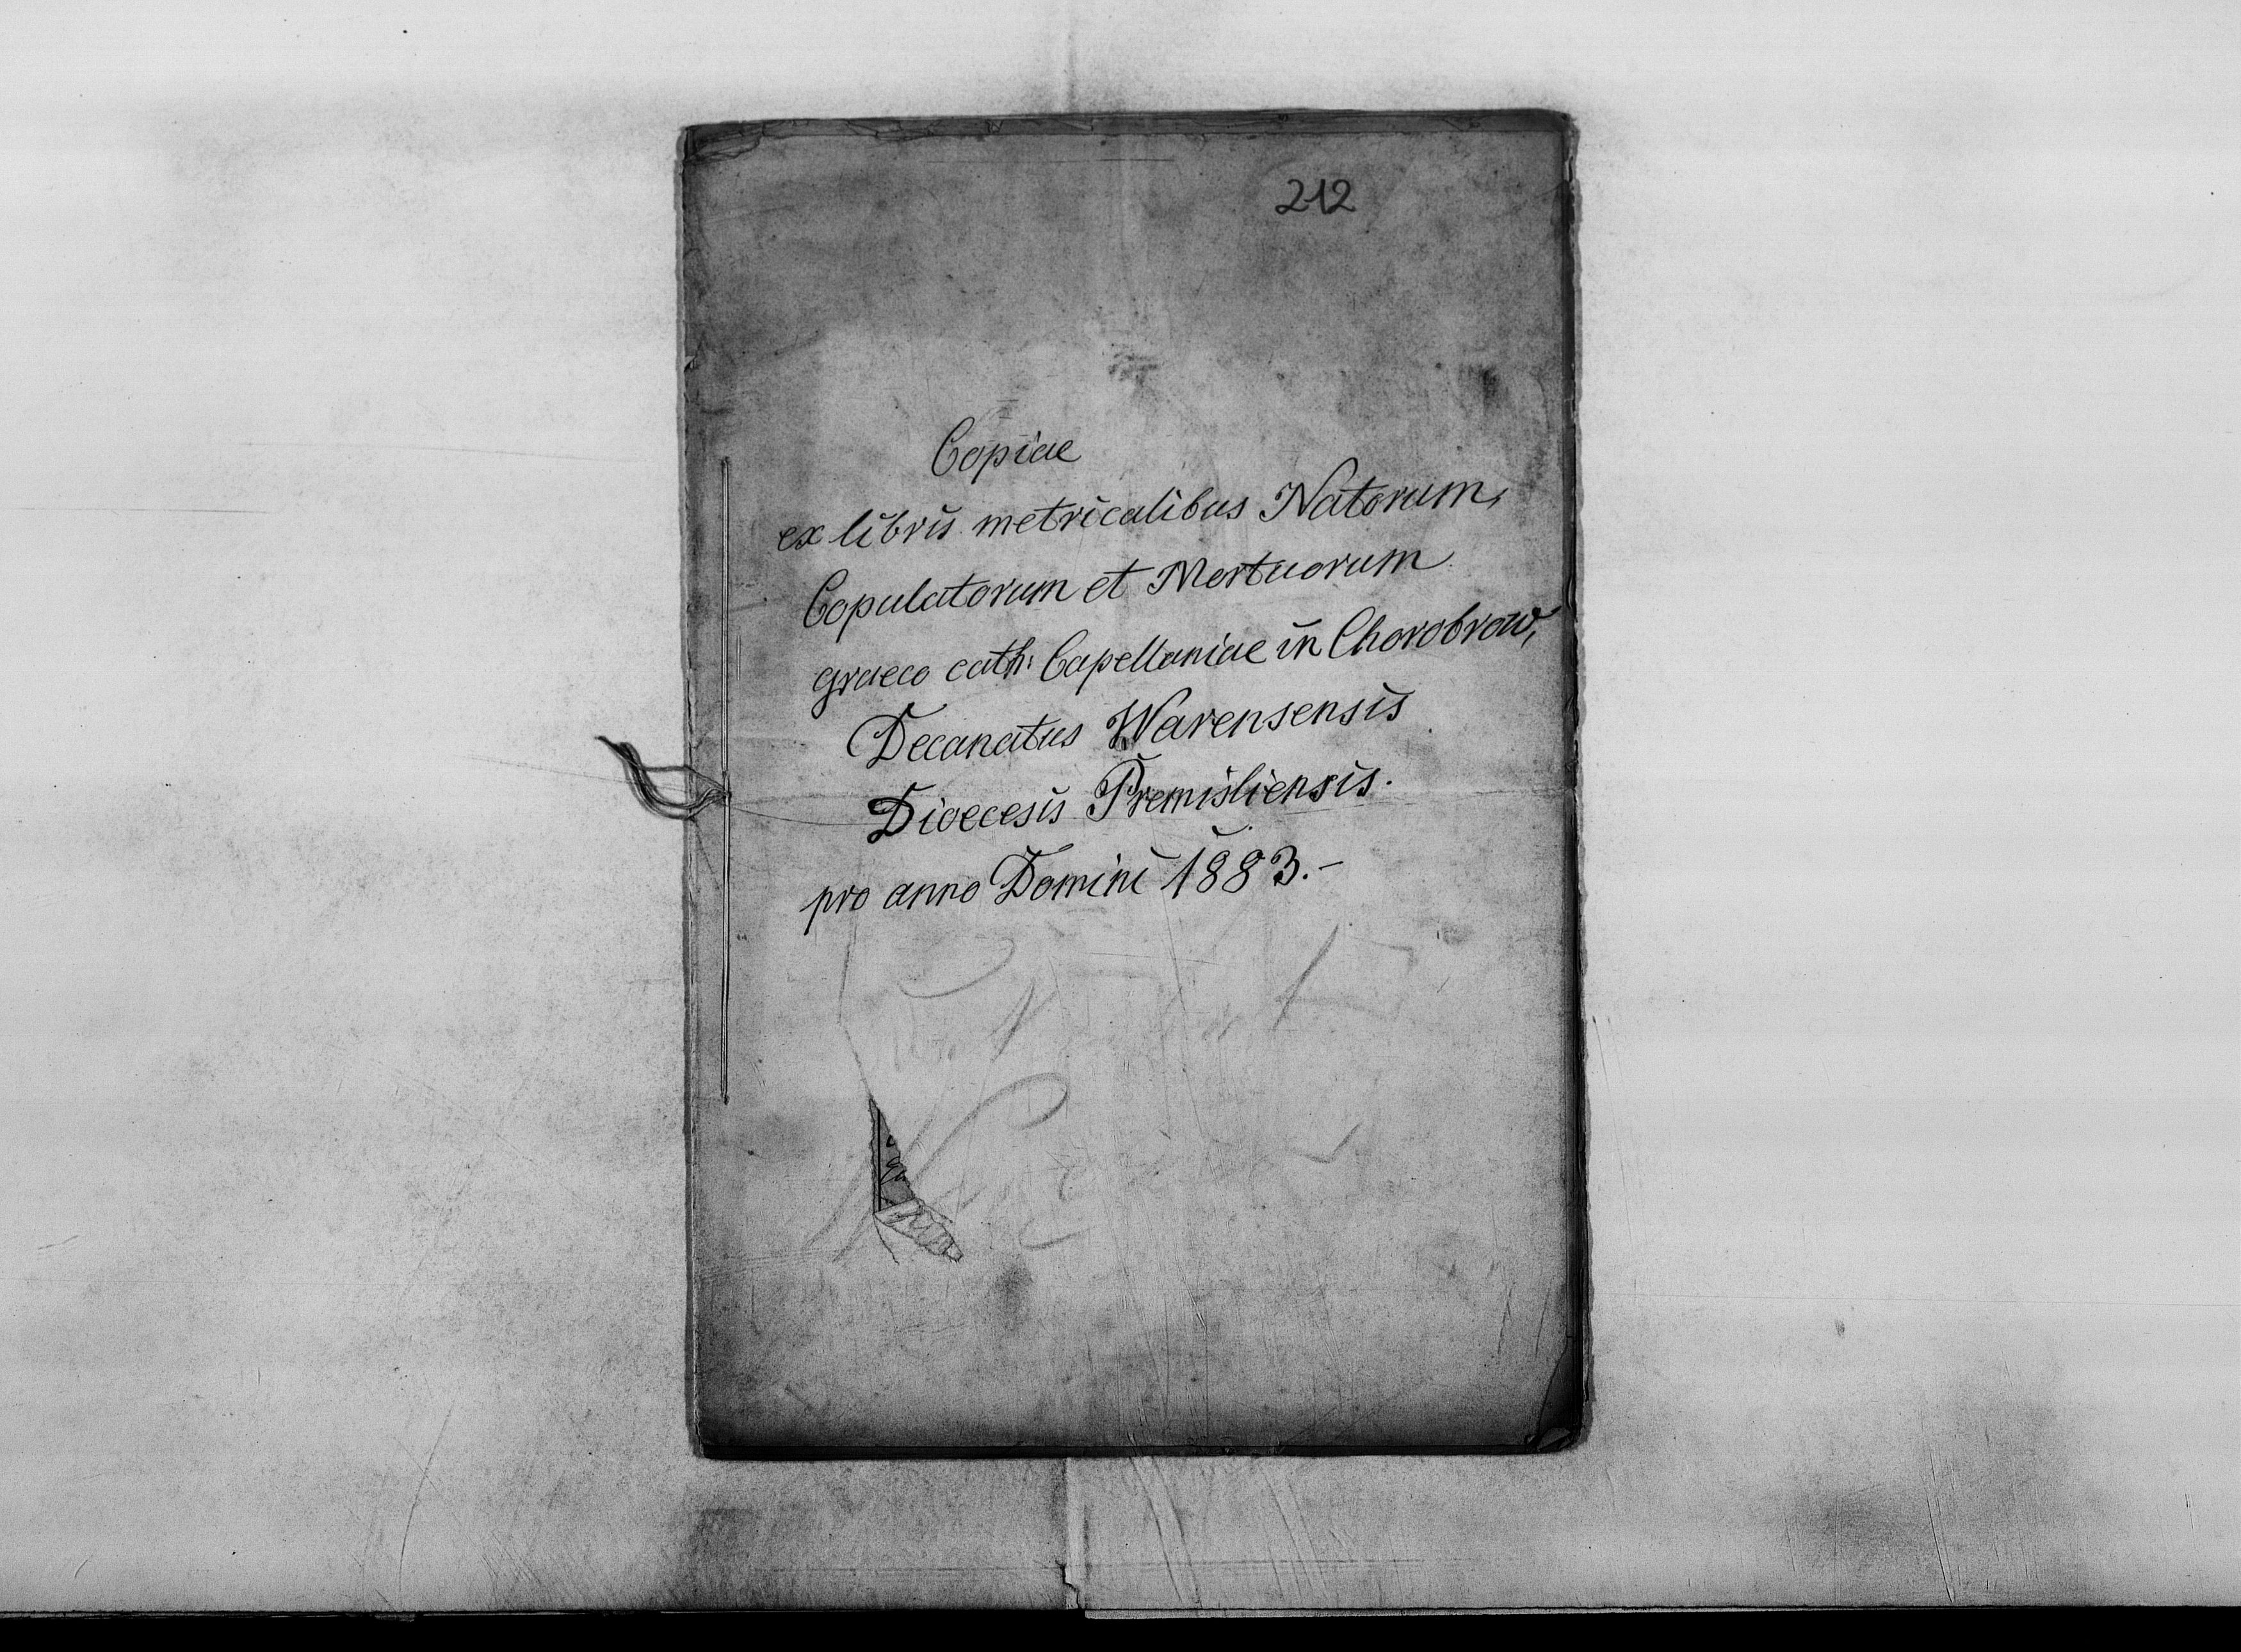 212
Copiae
ex libris metricalibus Natorum,
Copulatorum et Mortuorum
graeco cath: Capellaniae in Chorobrow,
Decanatus Warensensis
Dioecesis Premisliensis.
pro anno Domini 1883.-